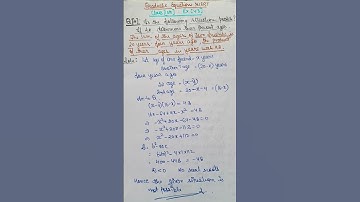 Quadratic Equations NCERT
Class 10th Ex 4.3
Q. Is the following situation possible?
If so determine their present ages.
The sum of the ages of two friends is
20 years. Four years ago, the product
of their ages in years was 48.
Soln: Let age of one friend = x years
Another age = (20-x) years
Four years ago
1st age = (x-4)
2nd age = 20-x-4 = (16-x)
(x-4)(16-x) = 48
16x-64+4x-x² = 48
⇒ -x²+20x-64-48=0
⇒ -x²+20x-112=0
⇒ x²-20x+112=0
b²-4ac
= 400-448 = -48
D<0 no real roots
Hence the given situation is
not possible